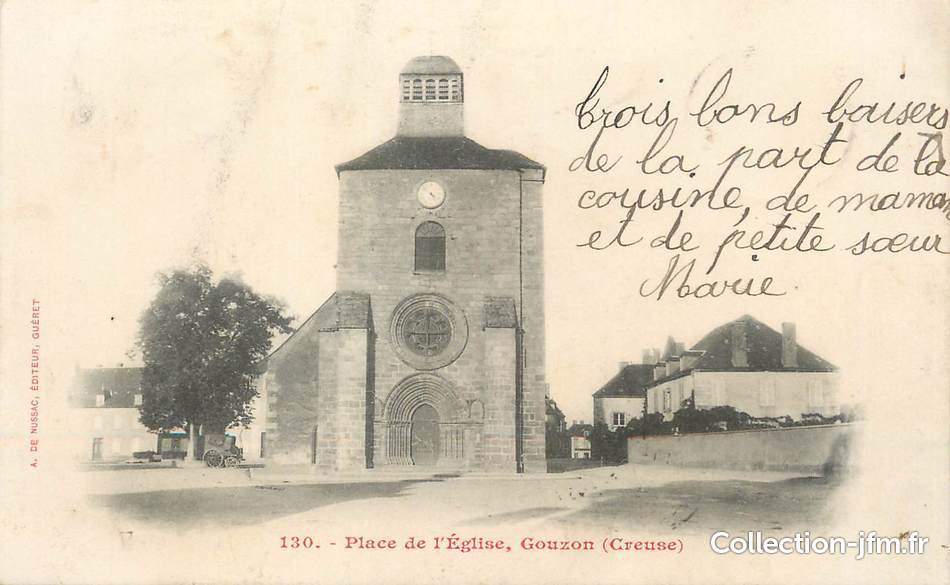 trois bons baisers
de la part de la
cousine, de maman
et de petite sœur
Marie
A. DE NUSSAC, ÉDITEUR, GUÉRET
130. - Place de l'Église, Gouzon (Creuse)
Collection-jfm.fr